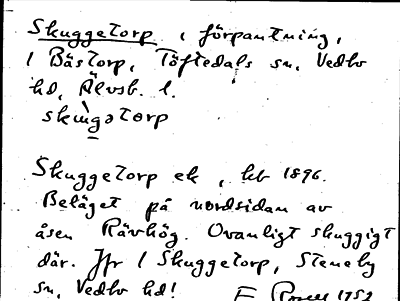 Skuggetorp, förpantning,
1 Bästorp, Töftedals sn, Vedbo
hd, Älvsb. l.
skuggetorp
Skuggetorp ek, hb 1896.
Beläget på nordsidan av
åsen Rävhög. Ovanligt skuggigt
där. Jfr 1 Skuggetorp, Steneby
sn, Vedbo hd!